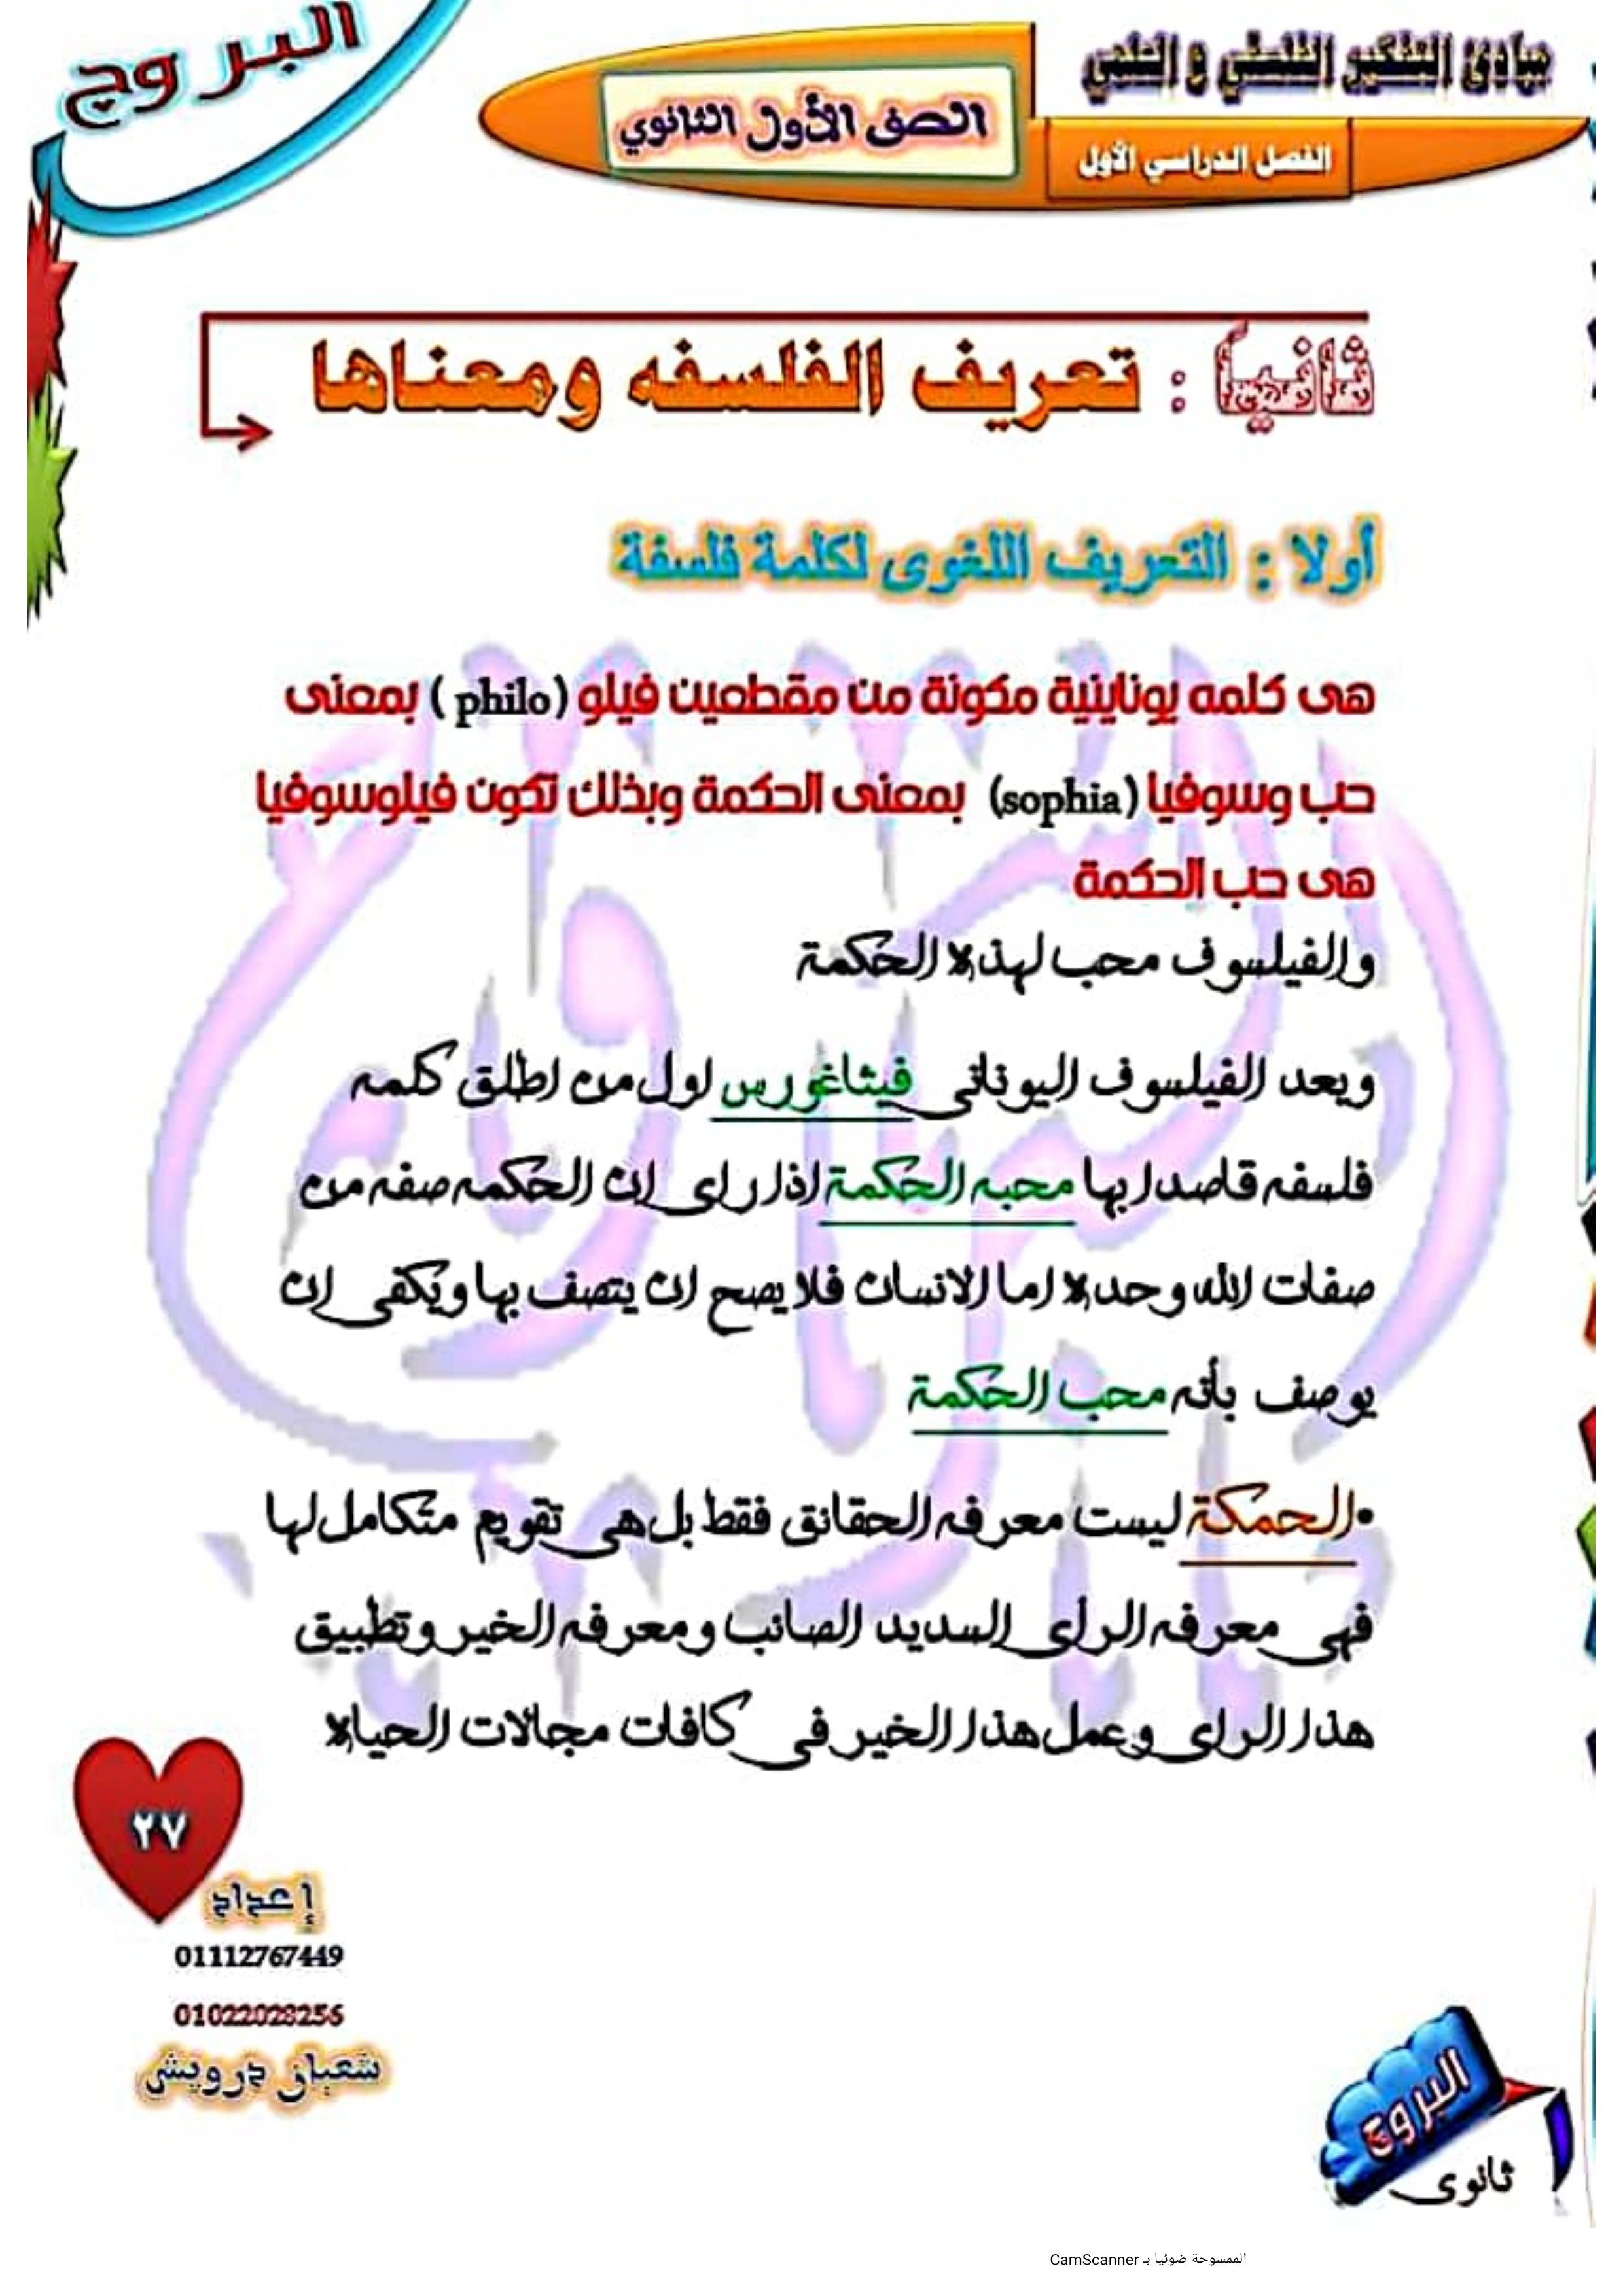 البروج
مبادئ التفكير الفلسفي و العلمي
الصف الأول الثانوي
الفصل الدراسي الأول
ثانياً : تعريف الفلسفه ومعناها
أولا : التعريف اللغوى لكلمة فلسفة
هى كلمه يوناينية مكونة من مقطعين فيلو (philo ) بمعنى
حب وسوفيا (sophia) بمعنى الحكمة وبذلك تكون فيلوسوفيا
هى حب الحكمة
والفيلسوف محب لهذه الحكمة
ويعد الفيلسوف اليونانى فيثاغورس اول من اطلق كلمه
فلسفه قاصدا بها محبه الحكمة اذا راى ان الحكمه صفه من
صفات الله وحده اما الانسان فلا يصح ان يتصف بها ويكفى ان
يوصف بأنه محب الحكمة
•الحمكة ليست معرفه الحقائق فقط بل هى تقويم متكامل لها
فهى معرفه الرأى السديد الصائب ومعرفه الخير وتطبيق
هذا الراى وعمل هذا الخير فى كافات مجالات الحياه
٢٧
إعداد
01112767449
01022028256
شعبان درويش
البروج
ثانوى
الممسوحة ضوئيا بـ CamScanner